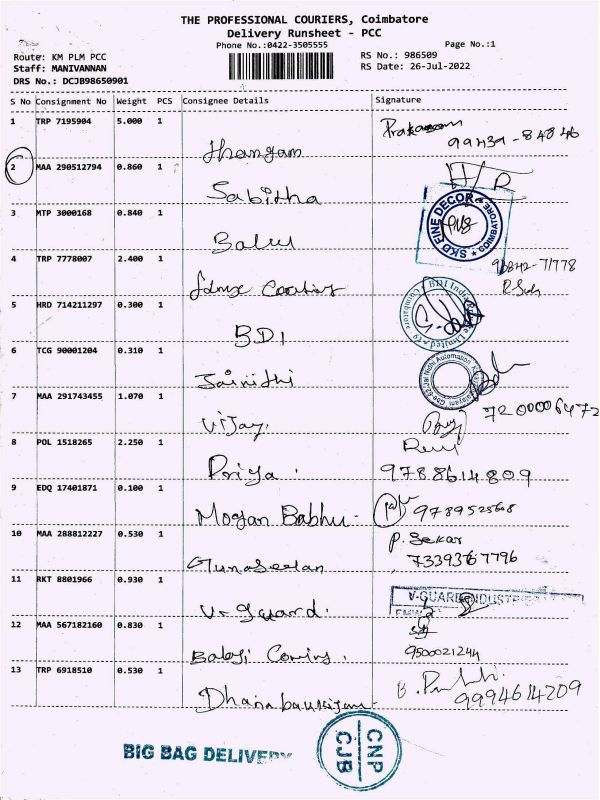 THE PROFESSIONAL COURIERS, Coimbatore
Delivery Runsheet - PCC
Phone No.:0422-3505555
Page No.:1
Route: KM PLM PCC
Staff: MANIVANNAN
DRS No.: DCJB98650901
RS No.: 986509
RS Date: 26-Jul-2022
S No Consignment No Weight PCS Consignee Details Signature
1 TRP 7195904 5.000 1
99439-84846
2 MAA 290512794 0.860 1
Sabitha H/R
SKD FINE DECOR COIMBATORE
3 MTP 3000168 0.840 1
Balu
4 TRP 7778007 2.400 1
98842-71778
5 HRD 714211297 0.300 1
BDI
BDI India Private Limited Coimbatore
6 TCG 90001204 0.310 1
Jainithi
Jai Nidhi Automation
7 MAA 291743455 1.070 1
Vijay. 7200006472
8 POL 1518265 2.250 1
Priya. 9788614809
9 EDQ 17401871 0.100 1
Mogan Babhu- 9789525608
10 MAA 288812227 0.530 1
P. Sekar
Gunaseelan
11 RKT 8801966 0.930 1
V-GUARD INDUSTRIES
V-guard.
12 MAA 567182160 0.830 1
Balaji 9500021244
13 TRP 6918510 0.530 1
9994614209
BIG BAG DELIVERY
CNP
CJB